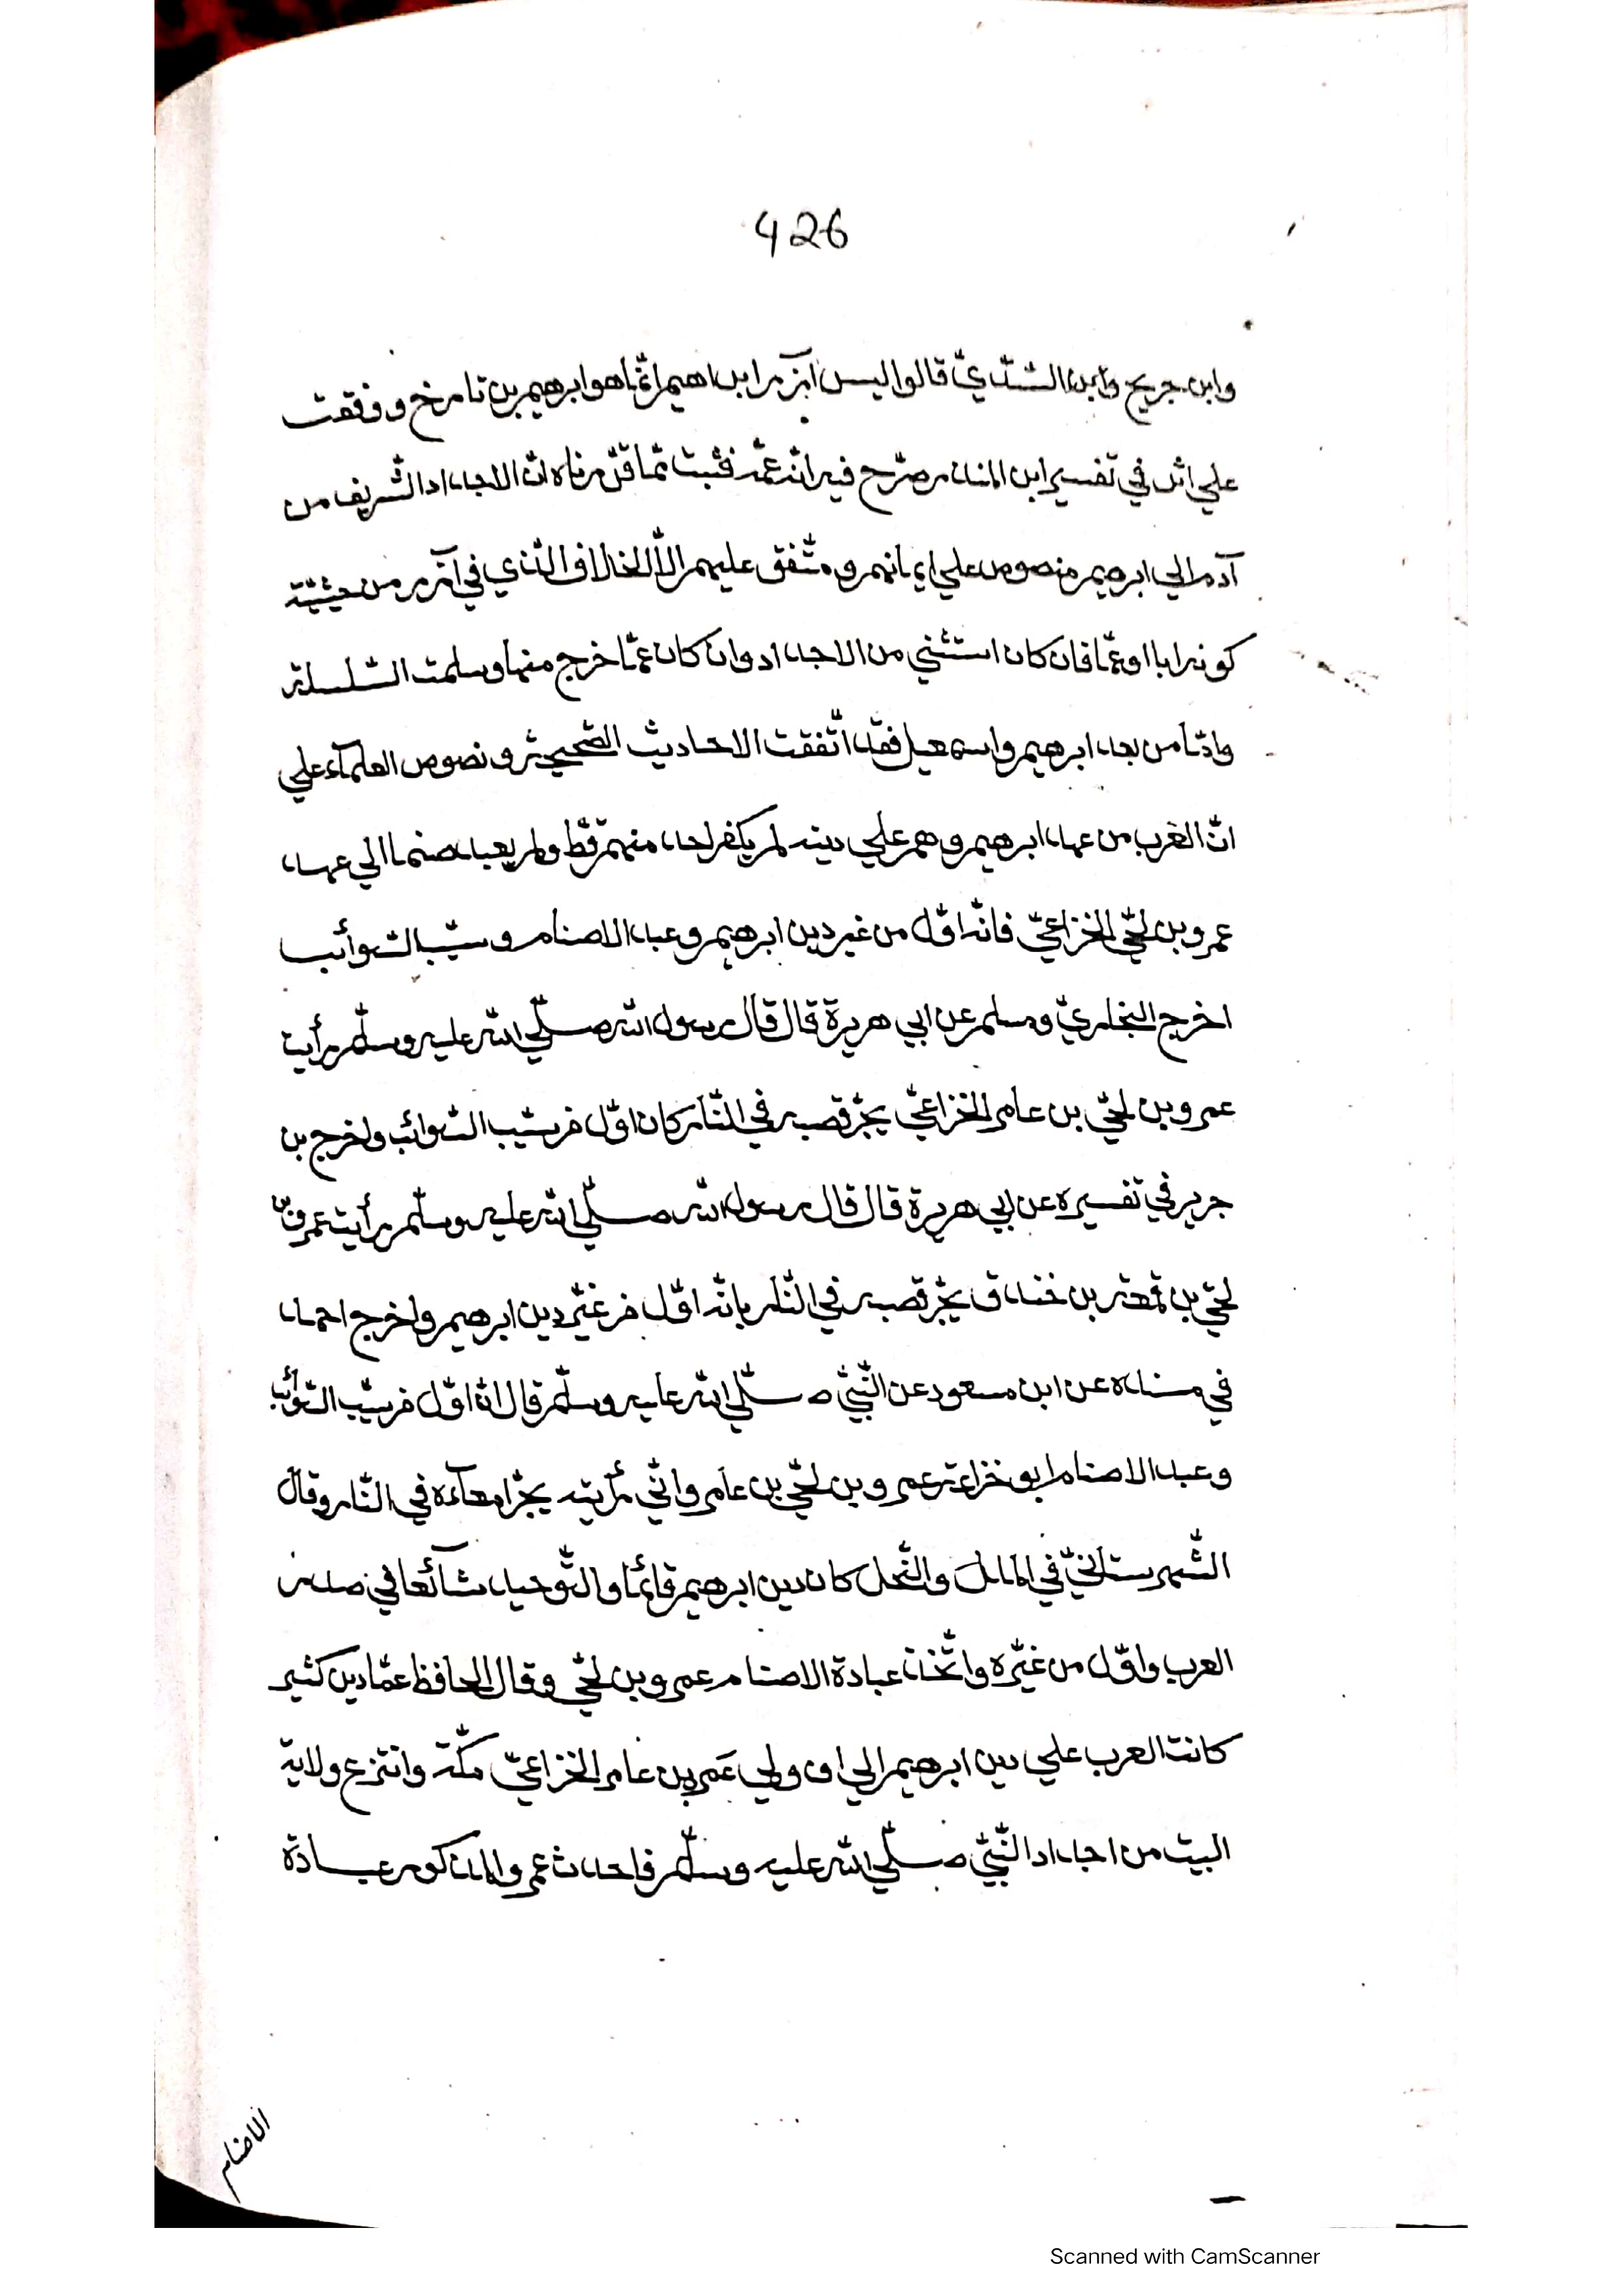 426
وابن جريج وابن السّدّيّ قالوا ليس آزر ابا ابراهيم انّما هو ابرهيم بن تارخ ووقفت
علي اثر في تفسير ابن المنذر صرّح فيه انّه عمّه فثبت ممّا قدّمناه انّ الاجداد الشّريف من
آدم الي ابرهيم منصوص علي ايمانهم ومتّفق عليهم الاّ الخلاف الّذي في آزر من حيثيّة
كونه ابا او عمّا فان كان استثني من الاجداد وان كان عمّا خرج منها وسلمت السّلسلة
وامّا من بعد ابرهيم واسمعيل فقد اتّفقت الاحاديث الصّحيحة ونصوص العلمآء علي
انّ العرب من عهد ابرهيم وهم علي دينه لم يكفر احد منهم قطّ ولم يعبد صنما الي عهد
عمرو بن لحيّ الخزاعيّ فانّه اوّل من غير دين ابرهيم وعبد الاصنام وسيّب السّوائب
اخرج البخاريّ ومسلم عن ابي هريرة قال قال رسول الله صلّي الله عليه وسلّم رأيت
عمرو بن لحيّ بن عامر الخزاعيّ يجرّ قصبه في النّار كان اوّل من سيّب السّوائب واخرج بن
جرير في تفسيره عن ابي هريرة قال قال رسول الله صلّي الله عليه وسلّم رأيت عمرو بن
لحيّ بن قمعة بن خندف يجرّ قصبه في النّار بانّه اوّل من غيّر دين ابرهيم واخرج احمد
في مسنده عن ابن مسعود عن النّبيّ صلّي الله عليه وسلّم قال انّ اوّل من سيّب السّوائب
وعبد الاصنام ابو خزاعة عمرو بن لحيّ بن عامر وانّي رأيته يجرّ امعآءه في النّار وقال
الشّهرستانيّ في الملل والنّحل كان دين ابرهيم قائما والتّوحيد شآئعا في صدر
العرب واوّل من غيّره واتّخذ عبادة الاصنام عمرو بن لحيّ وقال الحافظ عماد بن كثير
كانت العرب علي دين ابرهيم الي ان ولي عمرو بن عامر الخزاعيّ مكّة وانتزع ولاية
البيت من اجداد النّبيّ صلّي الله عليه وسلّم فاحدث عمرو المذكور عبادة
الاصنام
Scanned with CamScanner